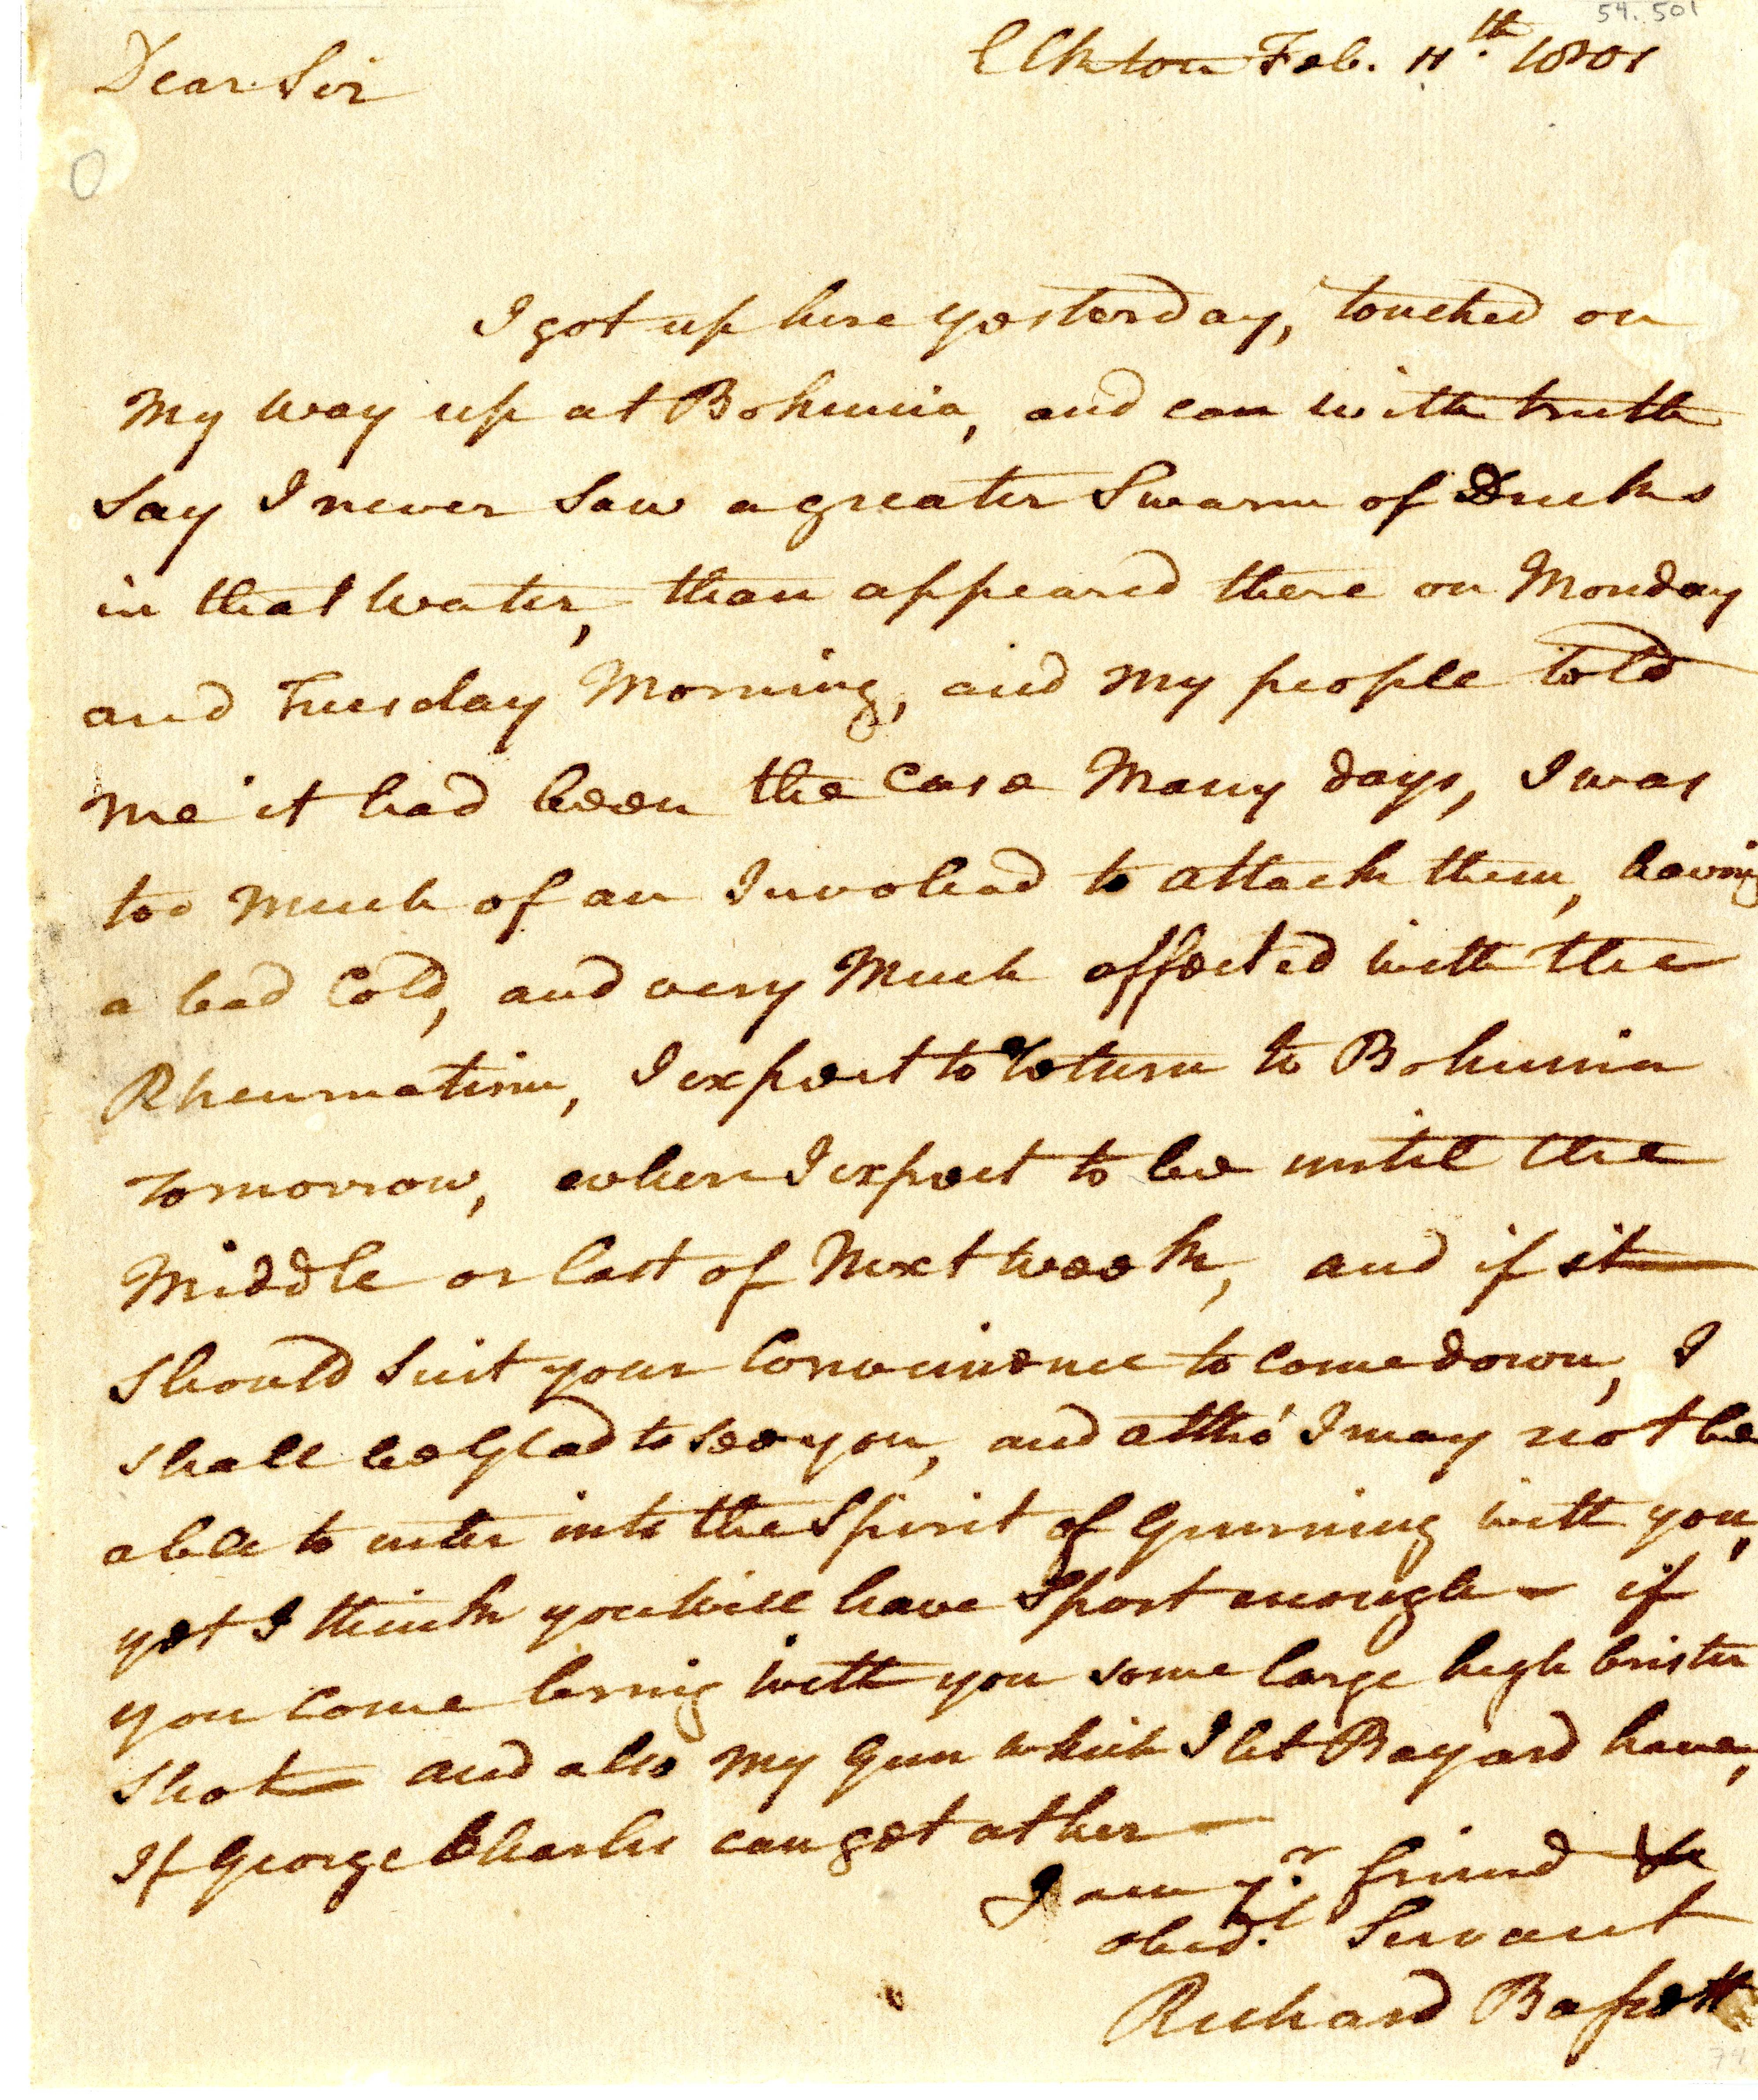 54.501
Elkton Feb. 11th. 1801
Dear Sir
0
I got up here yesterday, touched on
My way up at Bohemia, and can with truth
say I never saw a greater Swarm of Ducks
in that water, than appeared there on Monday
and Tuesday Morning, and my people told
me it had been the Case Many days, I was
too much of an Invalead to attack them, having
a bad Cold, and very Much affected with the
Rheumatism, I expect to return to Bohemia
tomorrow, where I expect to be until the
Middle or last of Next week, and if it
should suit your Convenience to come down, I
shall be Glad to see you, and altho' I may not be
able to enter into the Spirit of Gunning with you,
yet I think you will have Sport enough - if
you come bring with you some large high brister
shot — and also my Gun which I let Bayard have,
If George Charles can get at her —
I am yr. friend &
obedt. Servant
Richard Bassett
74